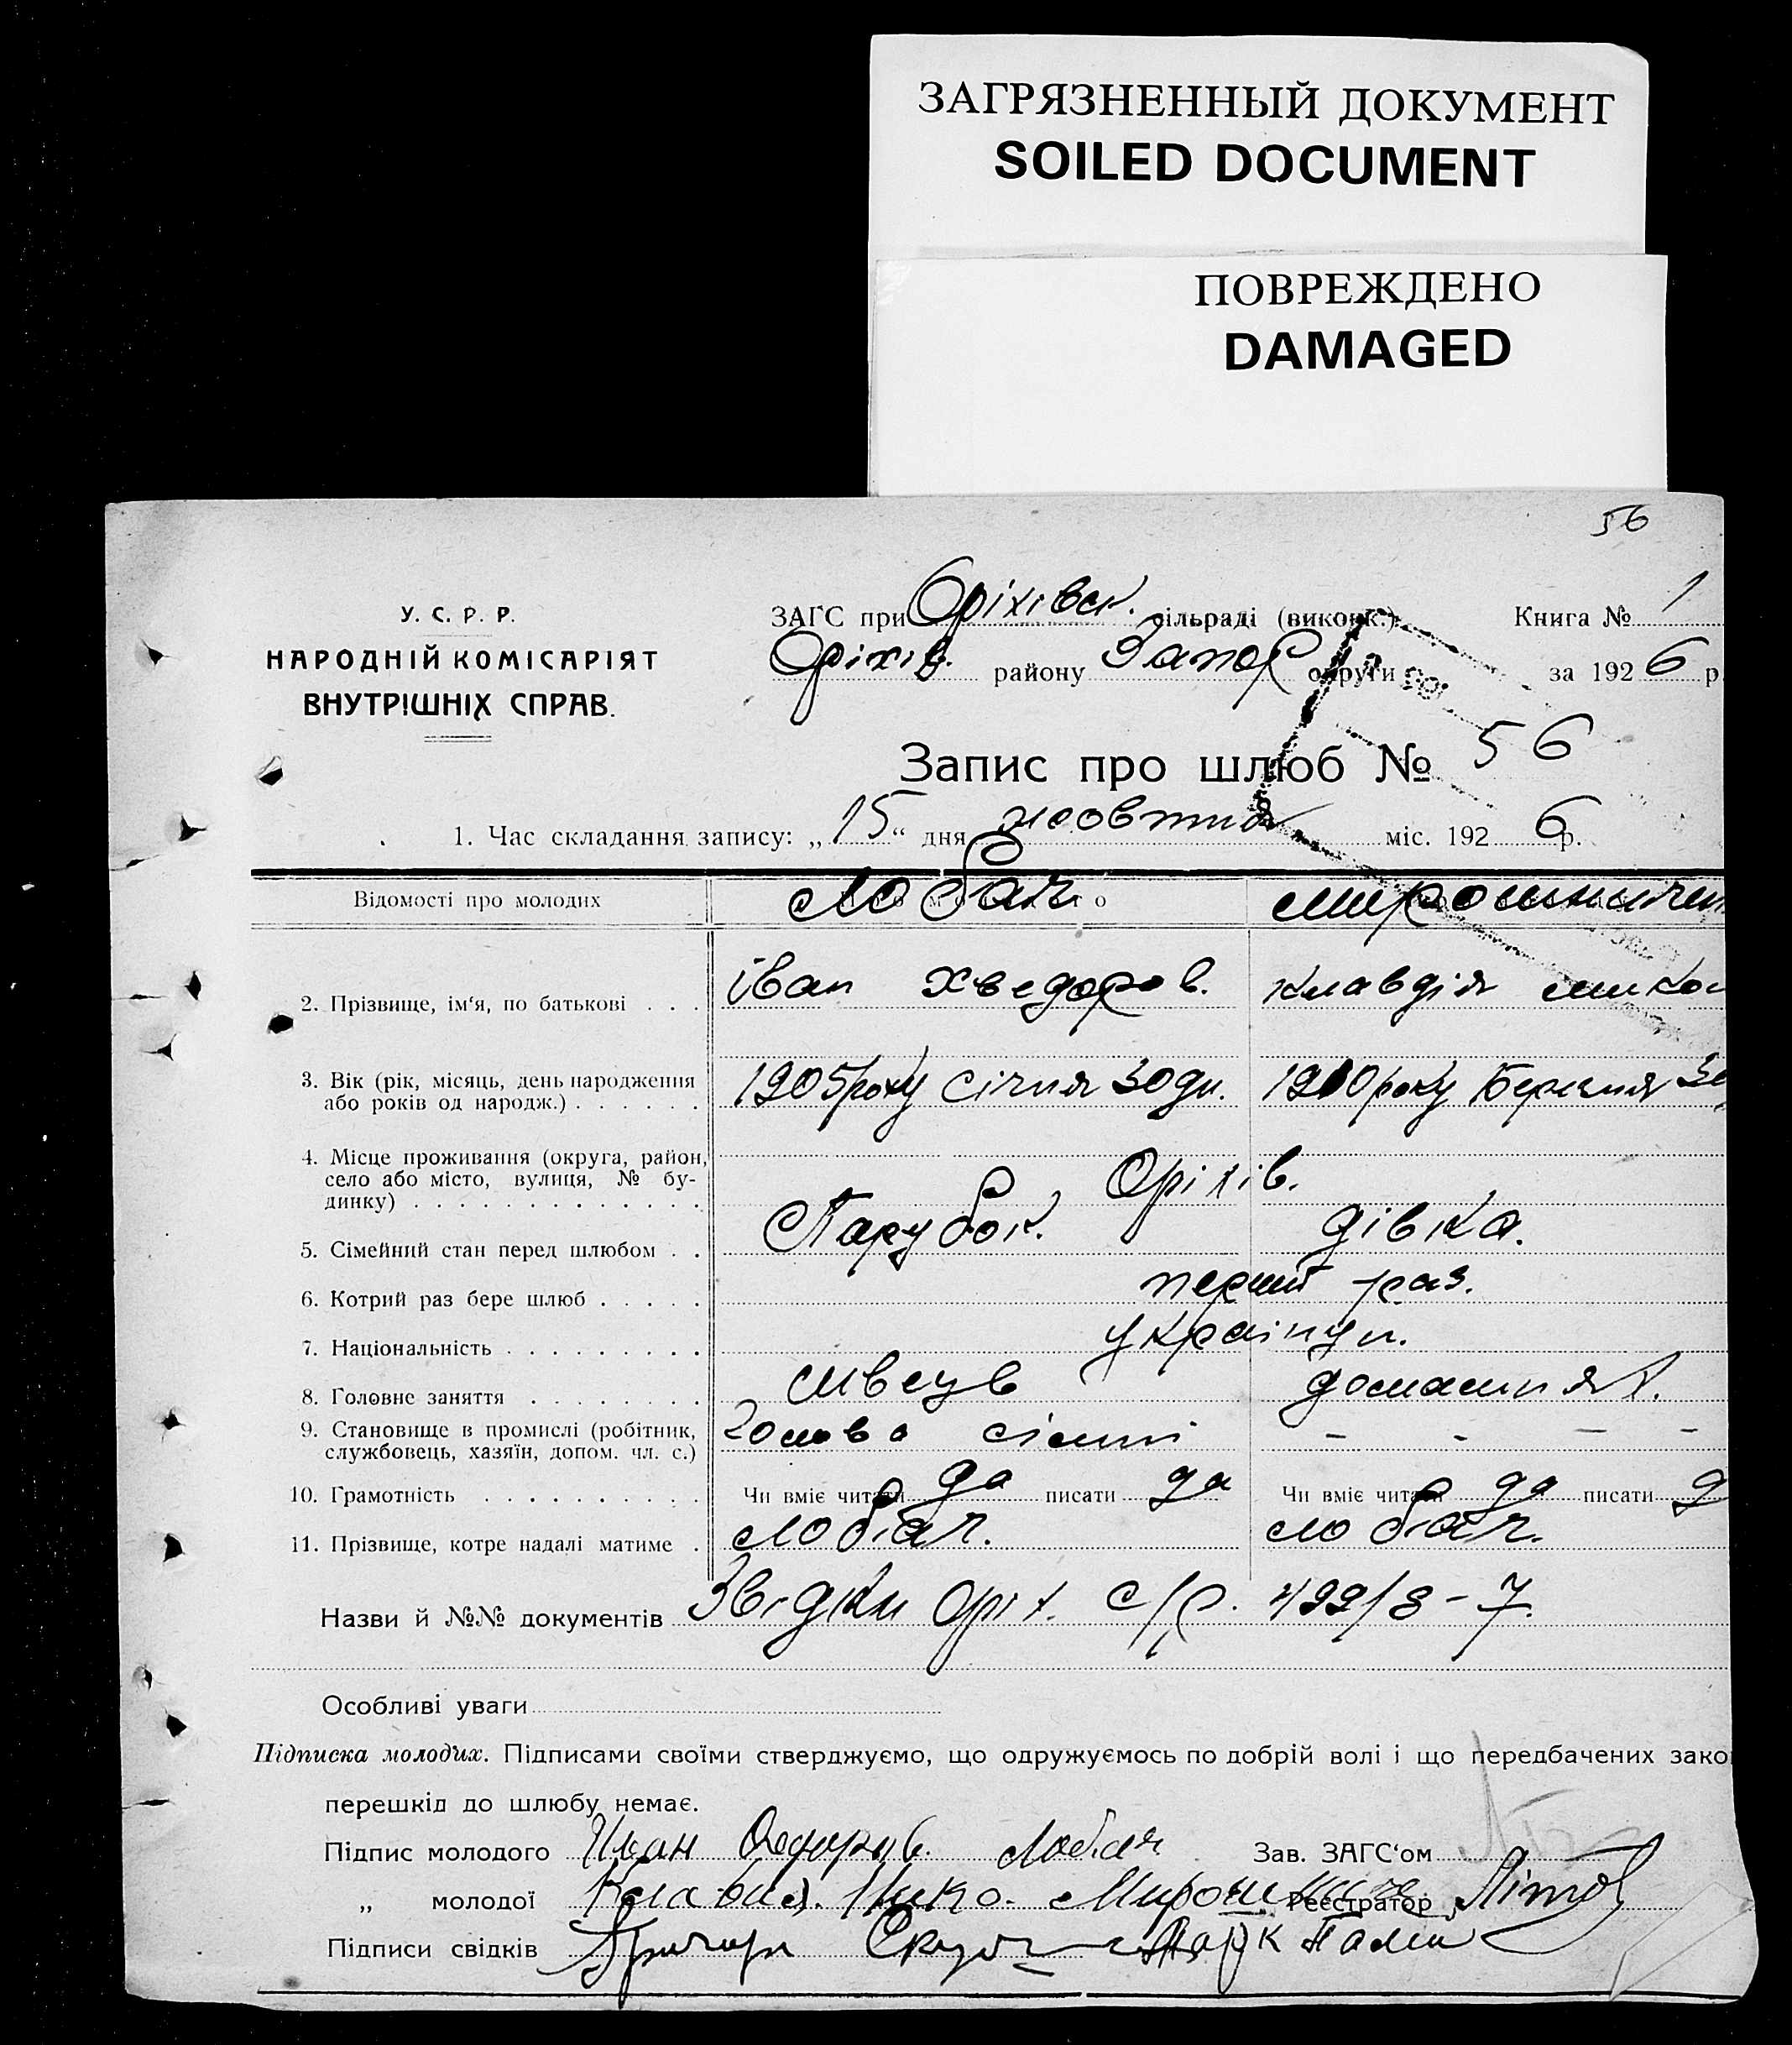 ЗАГРЯЗНЕННЫЙ ДОКУМЕНТ
SOILED DOCUMENT
ПОВРЕЖДЕНО
DAMAGED
56
У. С. Р. Р.
НАРОДНІЙ КОМІСАРІЯТ
ВНУТРІШНІХ СПРАВ.
ЗАГС при Оріхівськ. сільраді (виконк.) Книга № 1
Оріхів. району Запор округи за 1926 р.
Запис про шлюб № 56
1. Час складання запису: „15“ дня жовтня міс. 1926 р.
Відомості про молодих Лобач Мирошничен
2. Прізвище, ім‘я, по батькові . . . Іван Хведоров. Клавдія Микол
3. Вік (рік, місяць, день народження
або років од народж.) . . . . . . 1905 року Січня 30 дн. 1910 року Березня 30
4. Місце проживання (округа, район,
село або місто, вулиця, № бу-
динку) . . . . . . . . . . . . . Оріхів.
5. Сімейний стан перед шлюбом . . Парубок. дівка.
6. Котрий раз бере шлюб . . . . . перший раз.
7. Національність . . . . . . . . . українці.
8. Головне заняття . . . . . . . . швець домашня
9. Становище в промислі (робітник,
службовець, хазяїн, допом. чл. с.) Голова сім'ї - - - -
10. Грамотність . . . . . . . . . . Чи вміє читати да писати да Чи вміє читати да писати д
11. Прізвище, котре надалі матиме . Лобач. Лобач.
Назви й №№ документів Звідки Оріх. с/р. 499/8-7.
Особливі уваги
Підписка молодих. Підписами своїми стверджуємо, що одружуємось по добрій волі і що передбачених зако
перешкід до шлюбу немає.
Підпис молодого Иван Лобач Зав. ЗАГС‘ом
„ молодої Клавдия Нико. Мирошниче Реєстратор
Підписи свідків